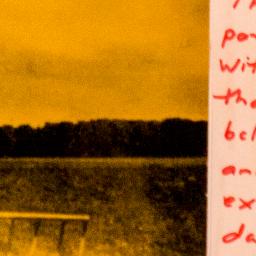 Th
pow
Wit
tho
bel
an
ex
da